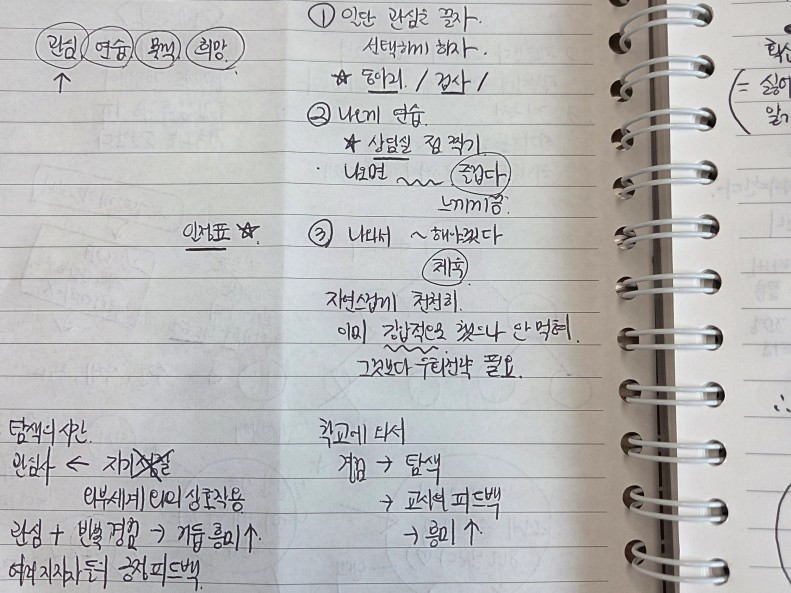 관심 연습 목적 희망
↑
① 일단 관심을 끌자.
선택하게 하자.
☆ 동아리 / 검사 /
② 나오게 연습.
☆ 상담실 점 찍기
· 나오면 ~~ 즐겁다
느끼게끔.
인정표 ☆.
③ 나와서 ~해야겠다
체육
자연스럽게 천천히.
이미 강압적으로 했으나 안 먹혀.
그것보다 우회전략 필요.
탐색의 시간.
관심사 ← 자기
외부세계와의 상호작용
관심 + 반복 경험 → 거듭 흥미↑
여러 지지자들의 긍정 피드백.
학교에 와서
경험 → 탐색
→ 교사의 피드백
→ 흥미↑
= 싫어